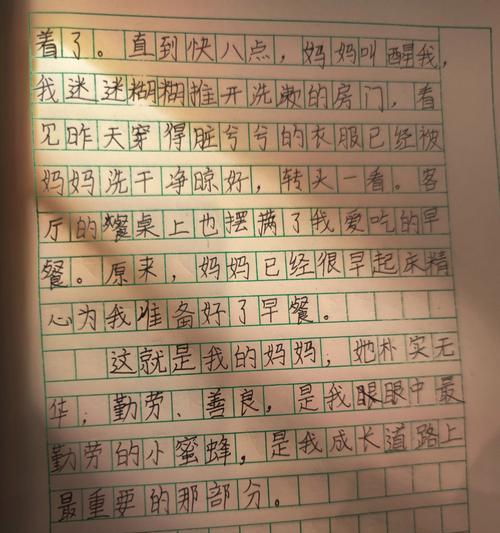 着了。直到快八点，妈妈叫醒我，
我迷迷糊糊推开洗漱的房门，看
见昨天穿得脏兮兮的衣服已经被
妈妈洗干净晾好，转头一看。客
厅的餐桌上也摆满了我爱吃的早
餐。原来，妈妈已经很早起床精
心为我准备好了早餐。
这就是我的妈妈，她朴实无
华，勤劳、善良，是我眼眼中最
勤劳的小蜜蜂，是我成长道路上
最重要的那部分。